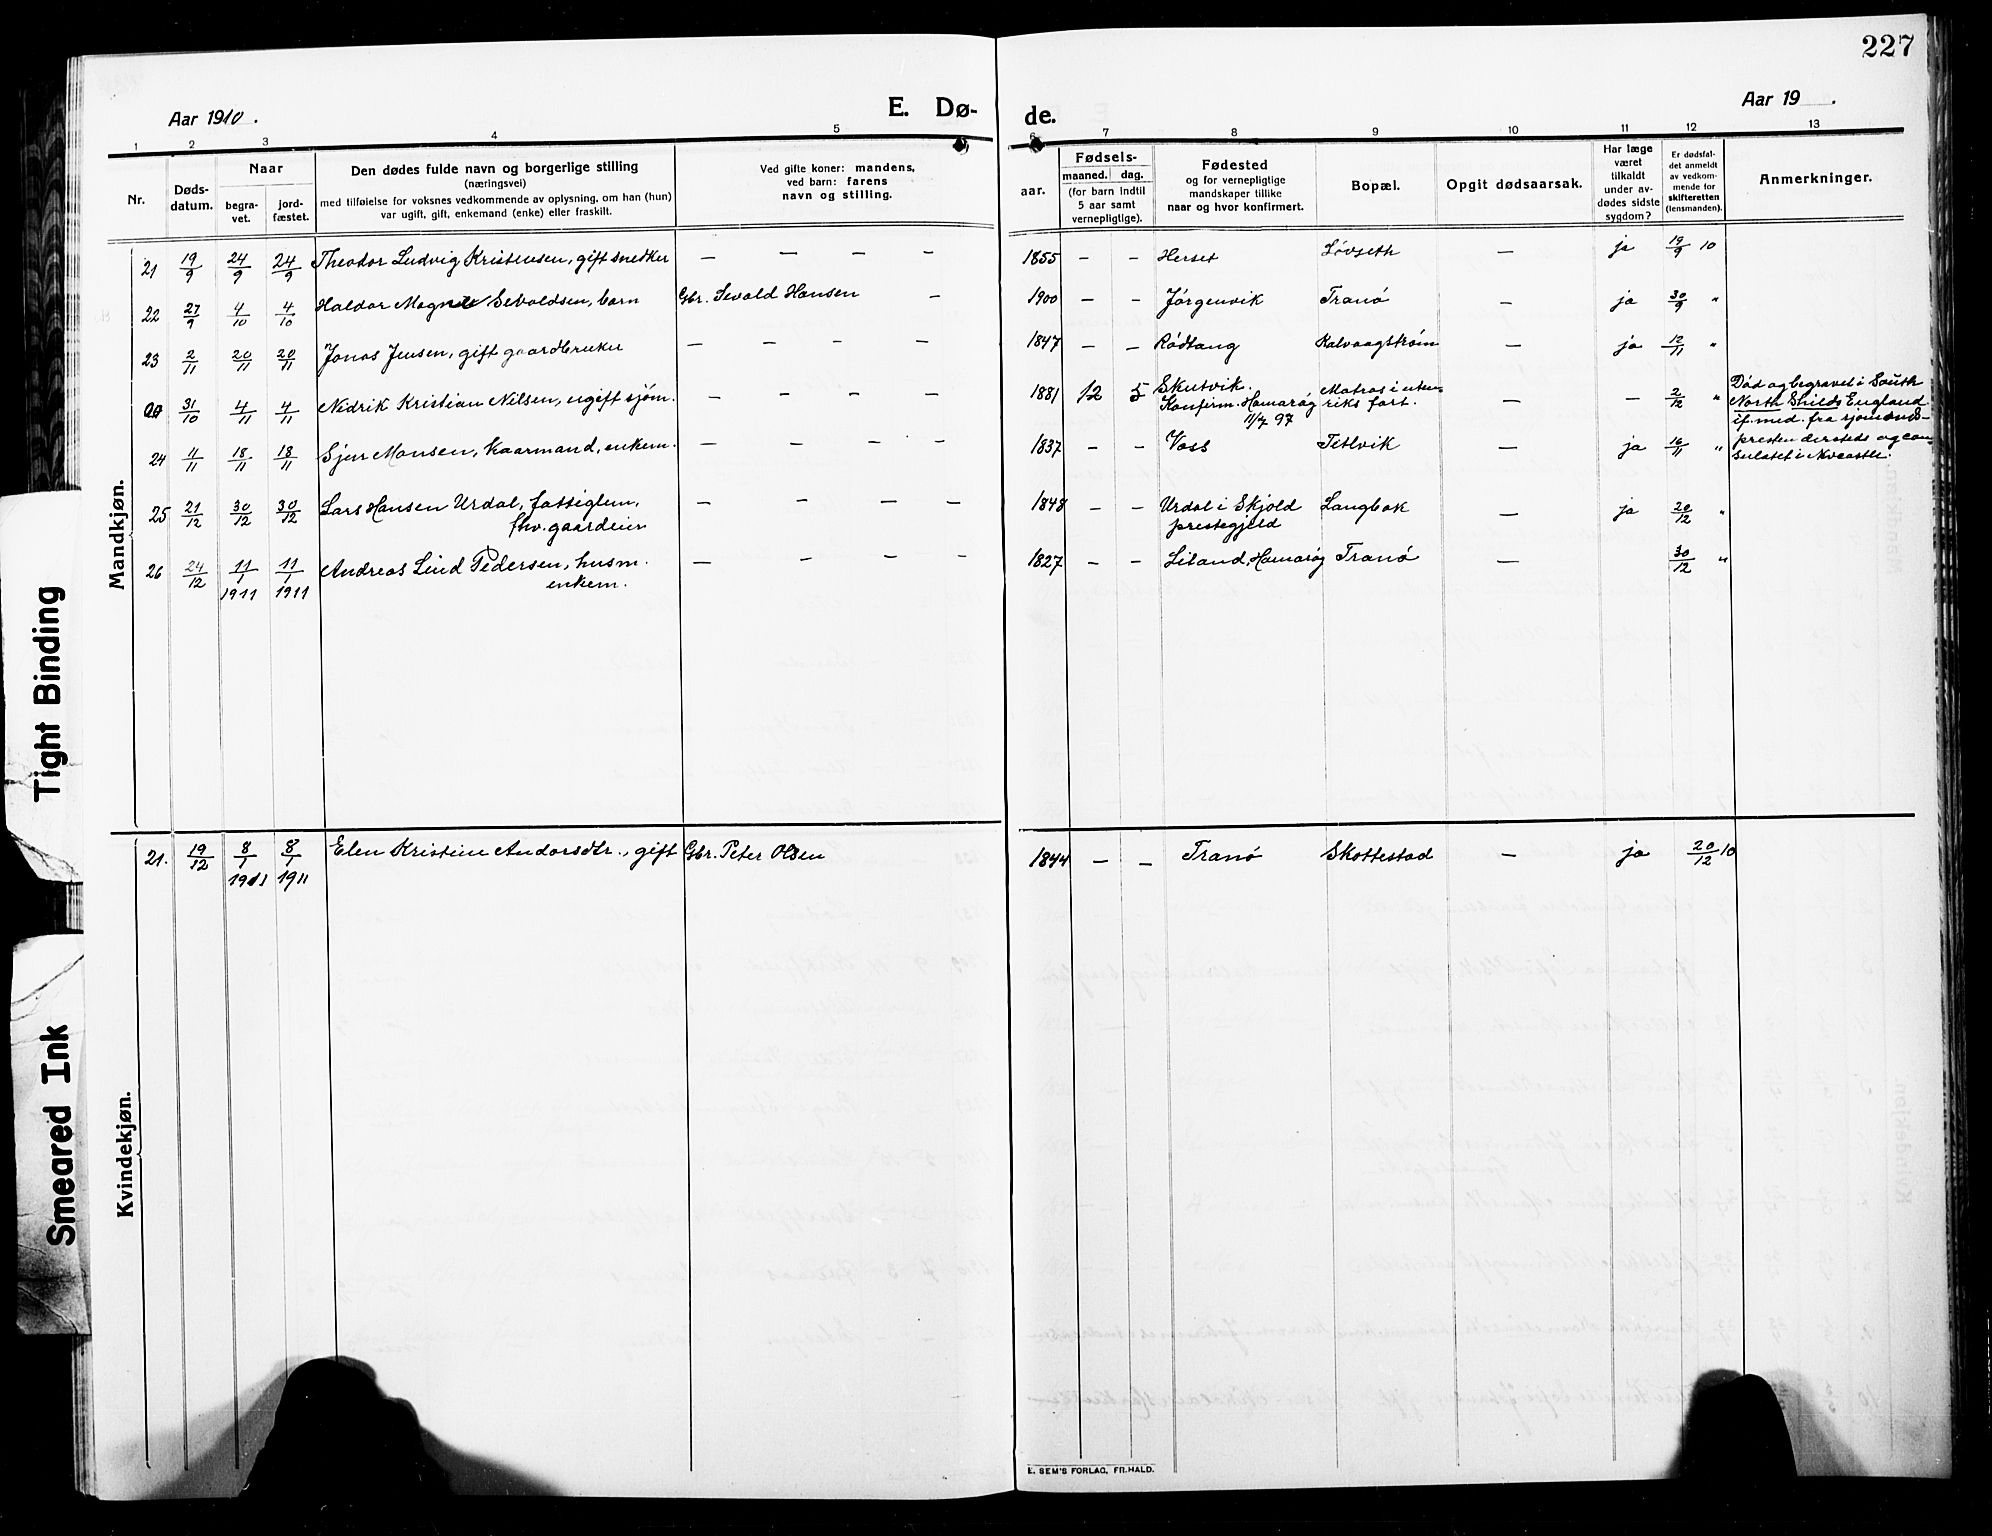 227
Aar 1910.
E. Dø-
de.
Aar 19 .
1 2 3 4 5 6 7 8 9 10 11 12 13
Nr.
Døds-
datum.
Naar
begra-
vet.
jord-
fæstet.
Den dødes fulde navn og borgerlige stilling
(næringsvei)
med tilføielse for voksnes vedkommende av oplysning, om han (hun)
var ugift, gift, enkemand (enke) eller fraskilt.
Ved gifte koner: mandens,
ved barn: farens
navn og stilling.
Fødsels-
aar.
maaned. dag.
(for barn indtil
5 aar samt
vernepligtige).
Fødested
og for vernepligtige
mandskaper tillike
naar og hvor konfirmert.
Bopæl.
Opgit dødsaarsak.
Har læge
været
tilkaldt
under av-
dødes sidste
sygdom?
Er dødsfal-
det anmeldt
av vedkom-
mende for
skifteretten
(lensmanden).
Anmerkninger.
Mandkjøn.
21 19/9 24/9 24/9 Theodor Ludvig Kristensen, gift snedker — — — — 1855 — — Herset Løvseth — ja 19/9 10
22 27/9 4/10 4/10 Haldor Magne Sevoldsen, barn Gbr. Sevald Hansen — 1900 — — Jørgenvik Tranø — ja 30/9 "
23 2/11 20/11 20/11 Jonas Jensen, gift gaardbruker — — — — 1847 — — Rødtang Kalvaagstrøm — ja 12/11 "
31/10 4/11 4/11 Nidrik Kristian Nilsen, ugift sjøm. — — — — 1881 12 5 Skutvik.
Konfirm. Hamarøy
11/7 97
Matros i uten-
riks fart. — — 2/12 "
Død og begravet i South
North Shilds England
if. med. fra sjømands-
presten dersteds og con-
sulatet i Nvcastle.
24 11/11 18/11 18/11 Sjur Monsen, kaarmand, enkem. — — — — 1837 — — Voss Tetlvik — ja 16/11 "
25 21/12 30/12 30/12 Lars Hansen Urdal, fattiglem,
fhv. gaardeier — — — — 1848 — — Urdal i Skjold
prestegjeld Langbak — ja 20/12 "
26 24/12 11/1 1911 11/1 1911 Andreas Lind Pedersen, husm.
enkem. — — — — 1827 — — Liland, Hamarøy Tranø — 30/12 "
Kvindekjøn.
21. 19/12 8/1 1911 8/1 1911 Elen Kristine Andorsdtr., gift Gbr. Peter Olsen 1844 — — Tranø Skottestad — ja 20/12 10
E. SEM'S FORLAG, FR.HALD.
Tight Binding
Smeared Ink